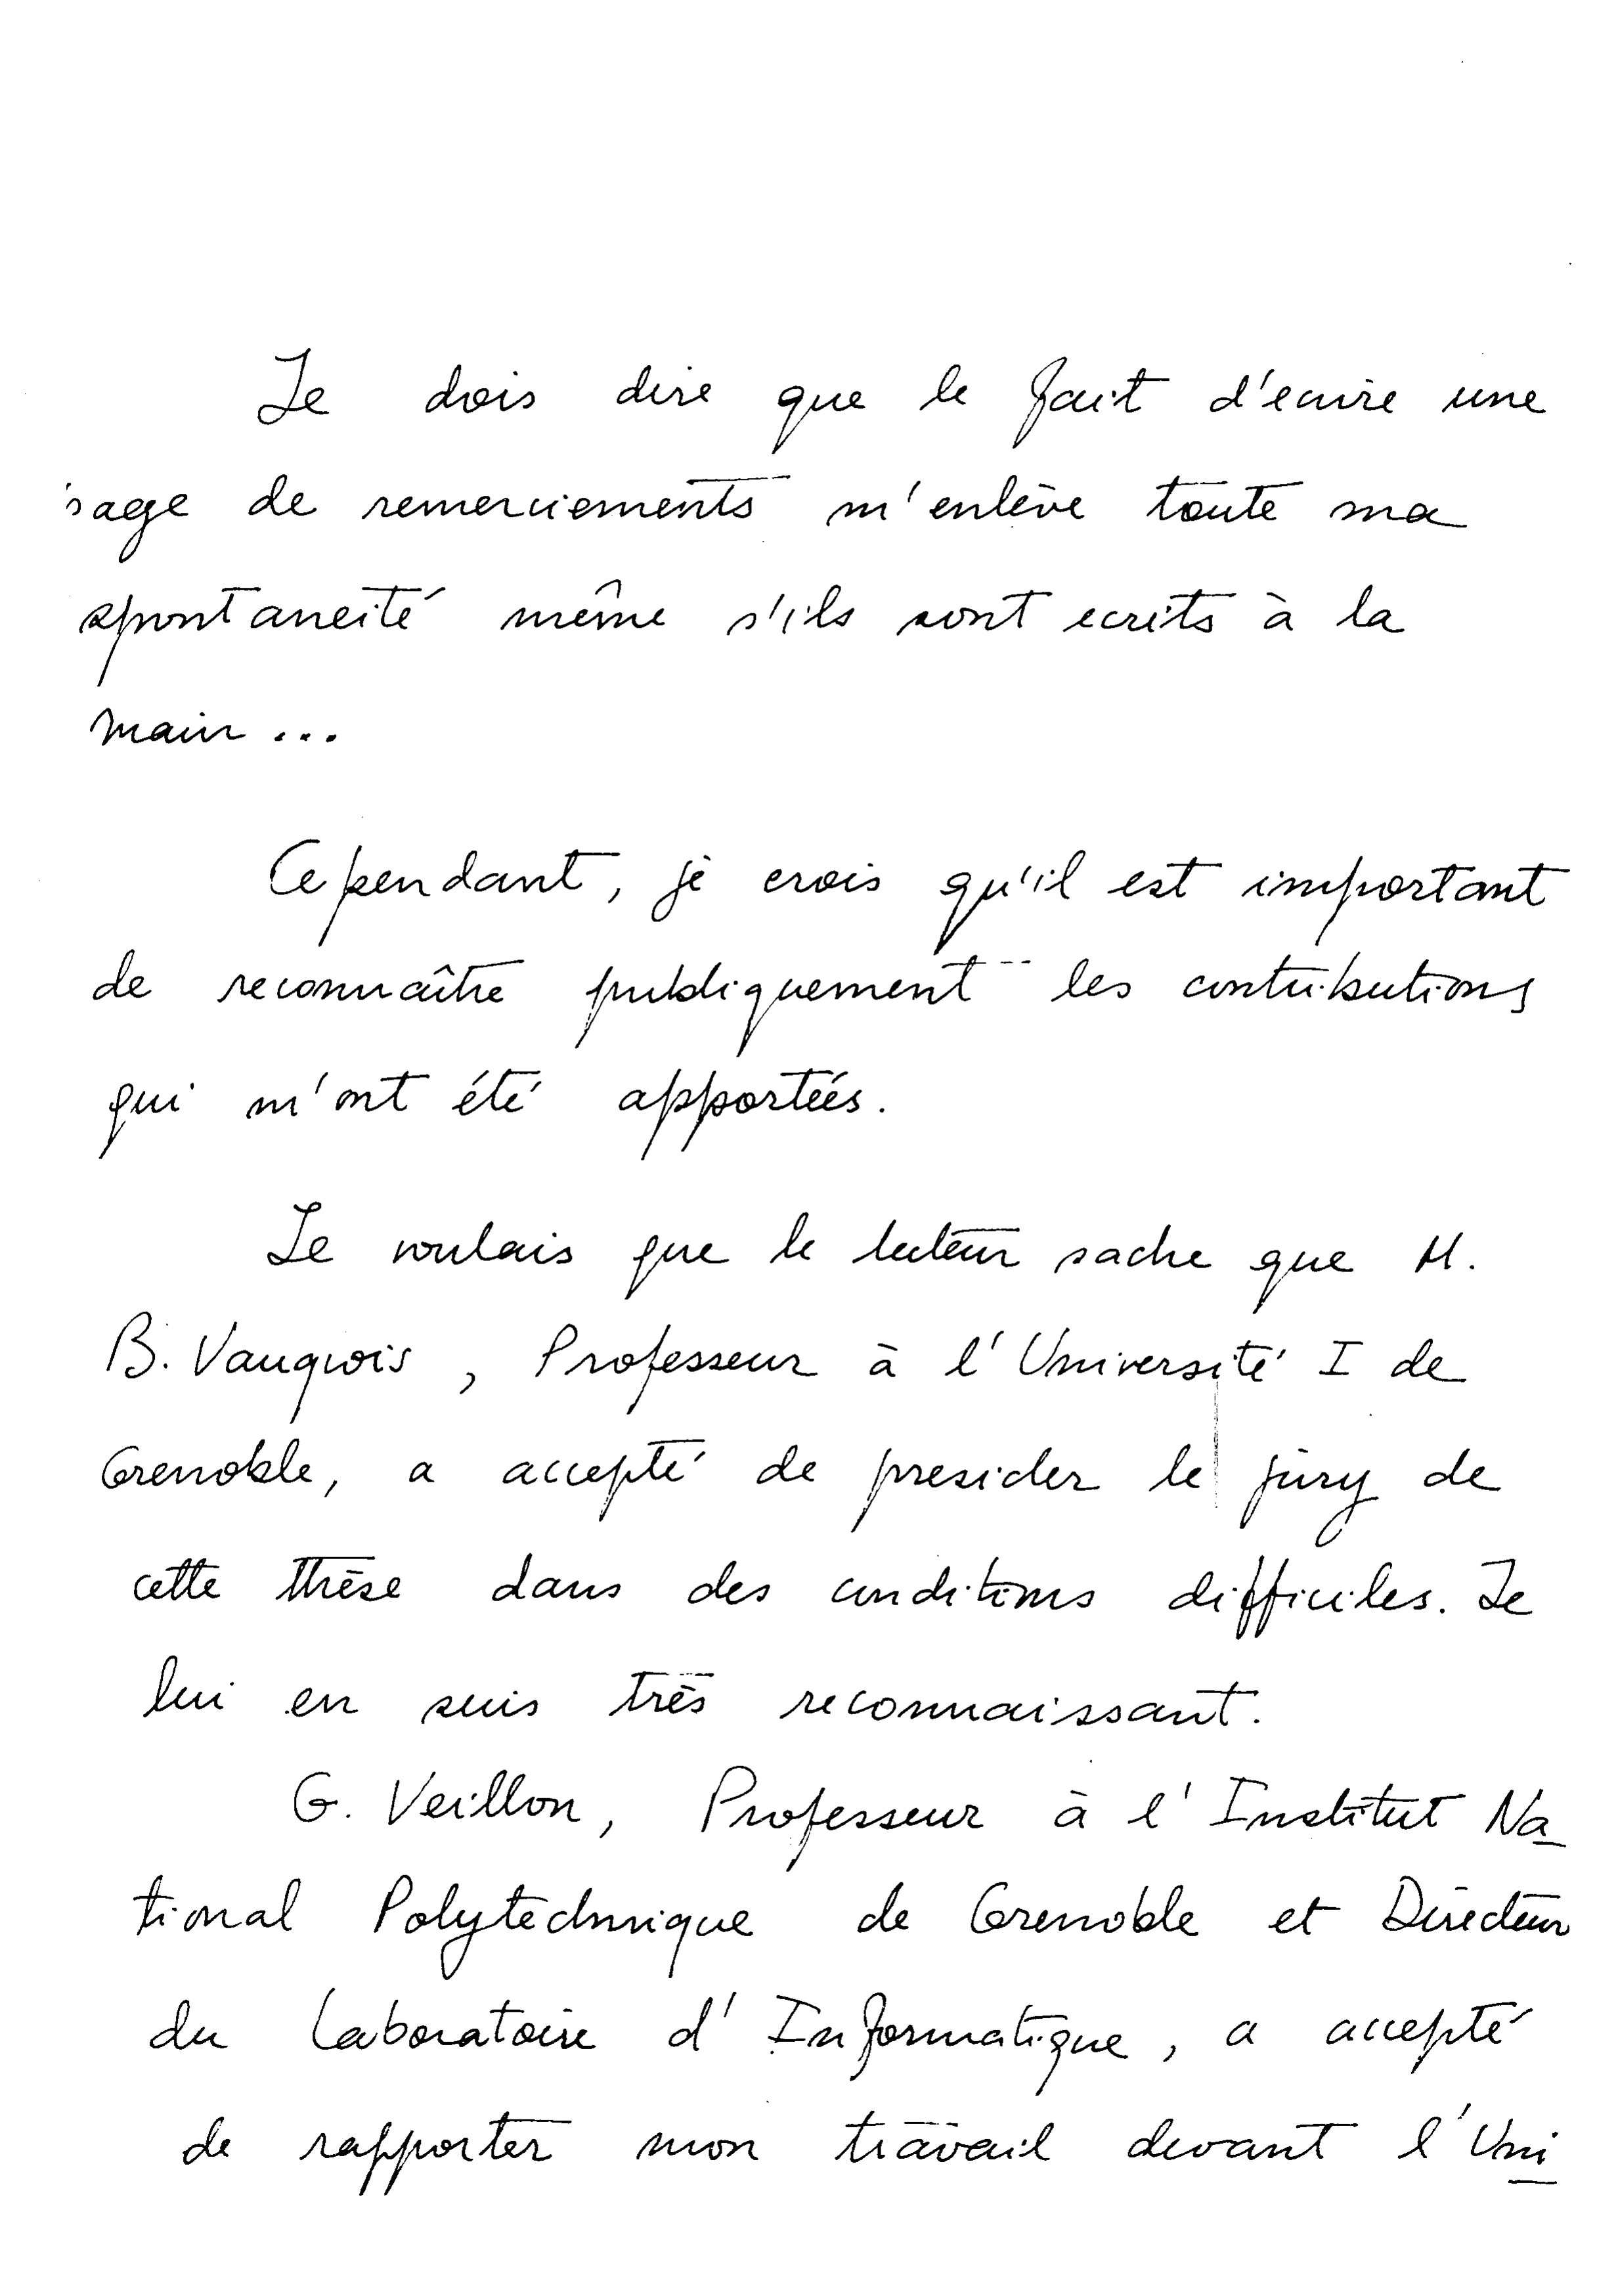 Je dois dire que le fait d'ecrire une
page de remerciements m'enlève toute ma
spontaneité même s'ils sont ecrits à la
main ...
Cependant, je crois qu'il est important
de reconnaître publiquement les contributions
qui m'ont été apportées.
Je voulais que le lecteur sache que M.
B. Vauquois, Professeur à l'Université I de
Grenoble, a accepté de presider le jury de
cette thèse dans des conditions difficiles. Je
lui en suis très reconnaissant.
G. Veillon, Professeur à l'Institut Na
tional Polytechnique de Grenoble et Directeur
du Laboratoire d'Informatique, a accepté
de rapporter mon travail devant l'Uni